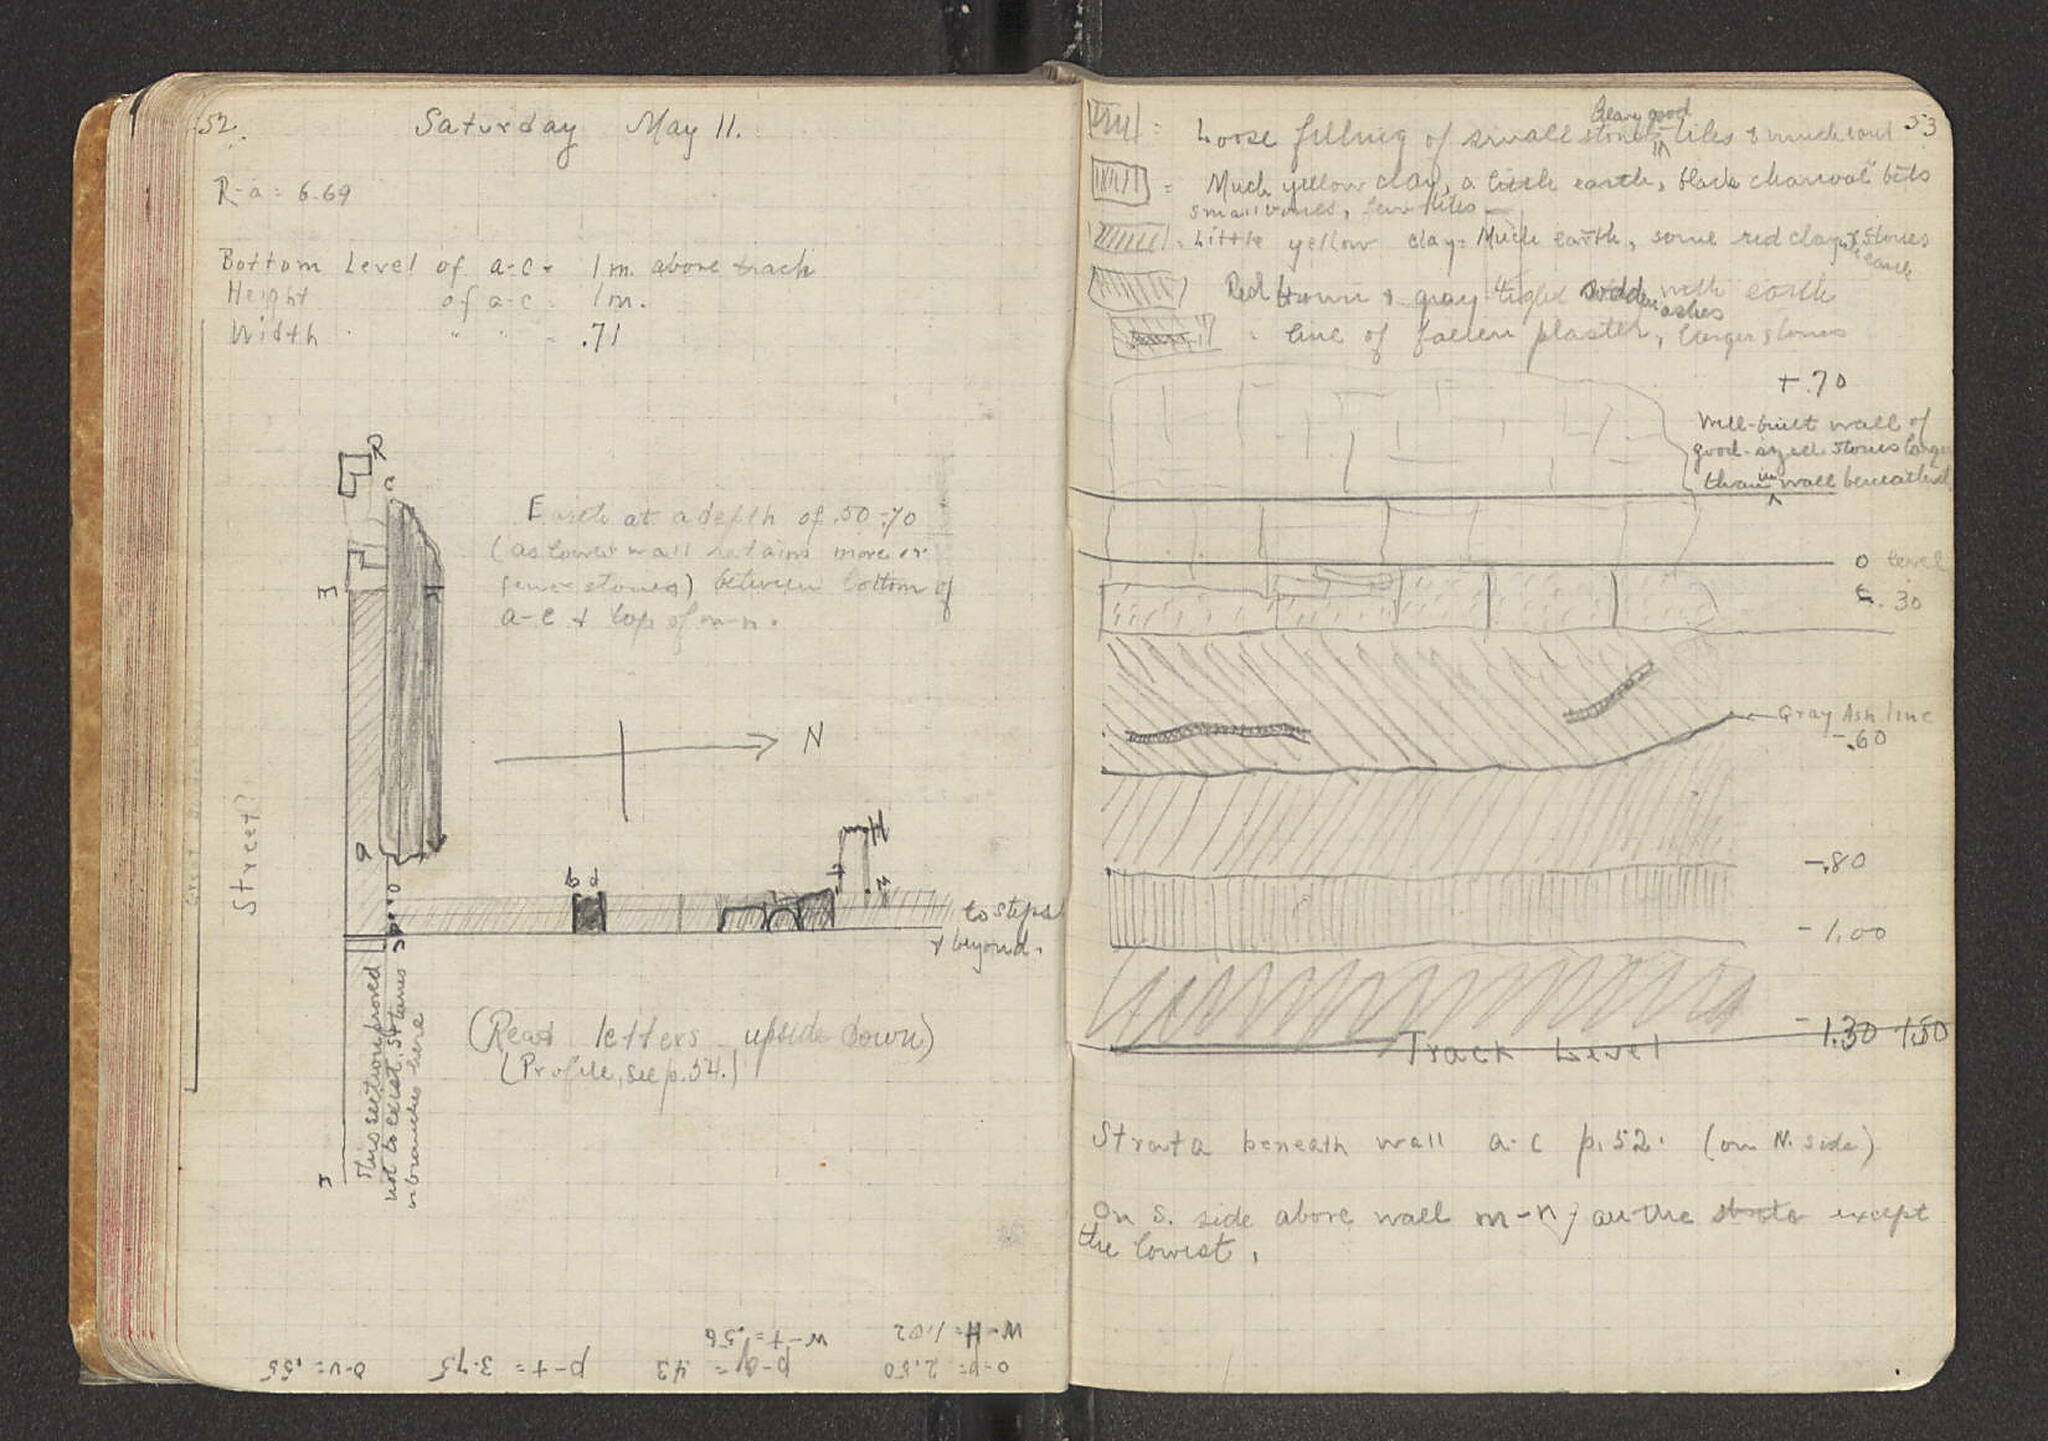 52.
Saturday May 11.
R-a = 6.69
Bottom Level of a-c = 1m. above track
Height of a-c = 1m.
Width " " = .71
R
a
Earth at a depth of .50-.70
(as lower wall retains more or
fewer stones) between bottom of
a-c & top of m-n.
N
Street?
to steps
& beyond.
This section proved
not to exist.
branches here
(Read letters upside down)
(Profile, see p. 54.)
W-H = 1.02
w-t = .56
o-p = 2.50
p-q = .43
p-t = 3.75
o-v = .55
53
= Loose filling of small stones in tiles & much
= Much yellow clay, a little earth, black charcoal bits
small bones, few tiles —
= Little yellow clay = Much earth, some red clay, & stones
Red brown & gray with earth
ashes
= line of fallen plaster, larger stones
+.70
Well-built wall of
good-sized stones larger
than in wall beneath it
0 level
-.30
Gray Ash line
-.60
-.80
-1.00
-1.30 1.50
Track Level
Strata beneath wall a-c p. 52. (on N. side)
On S. side above wall m-n, all the strata except
the lowest.